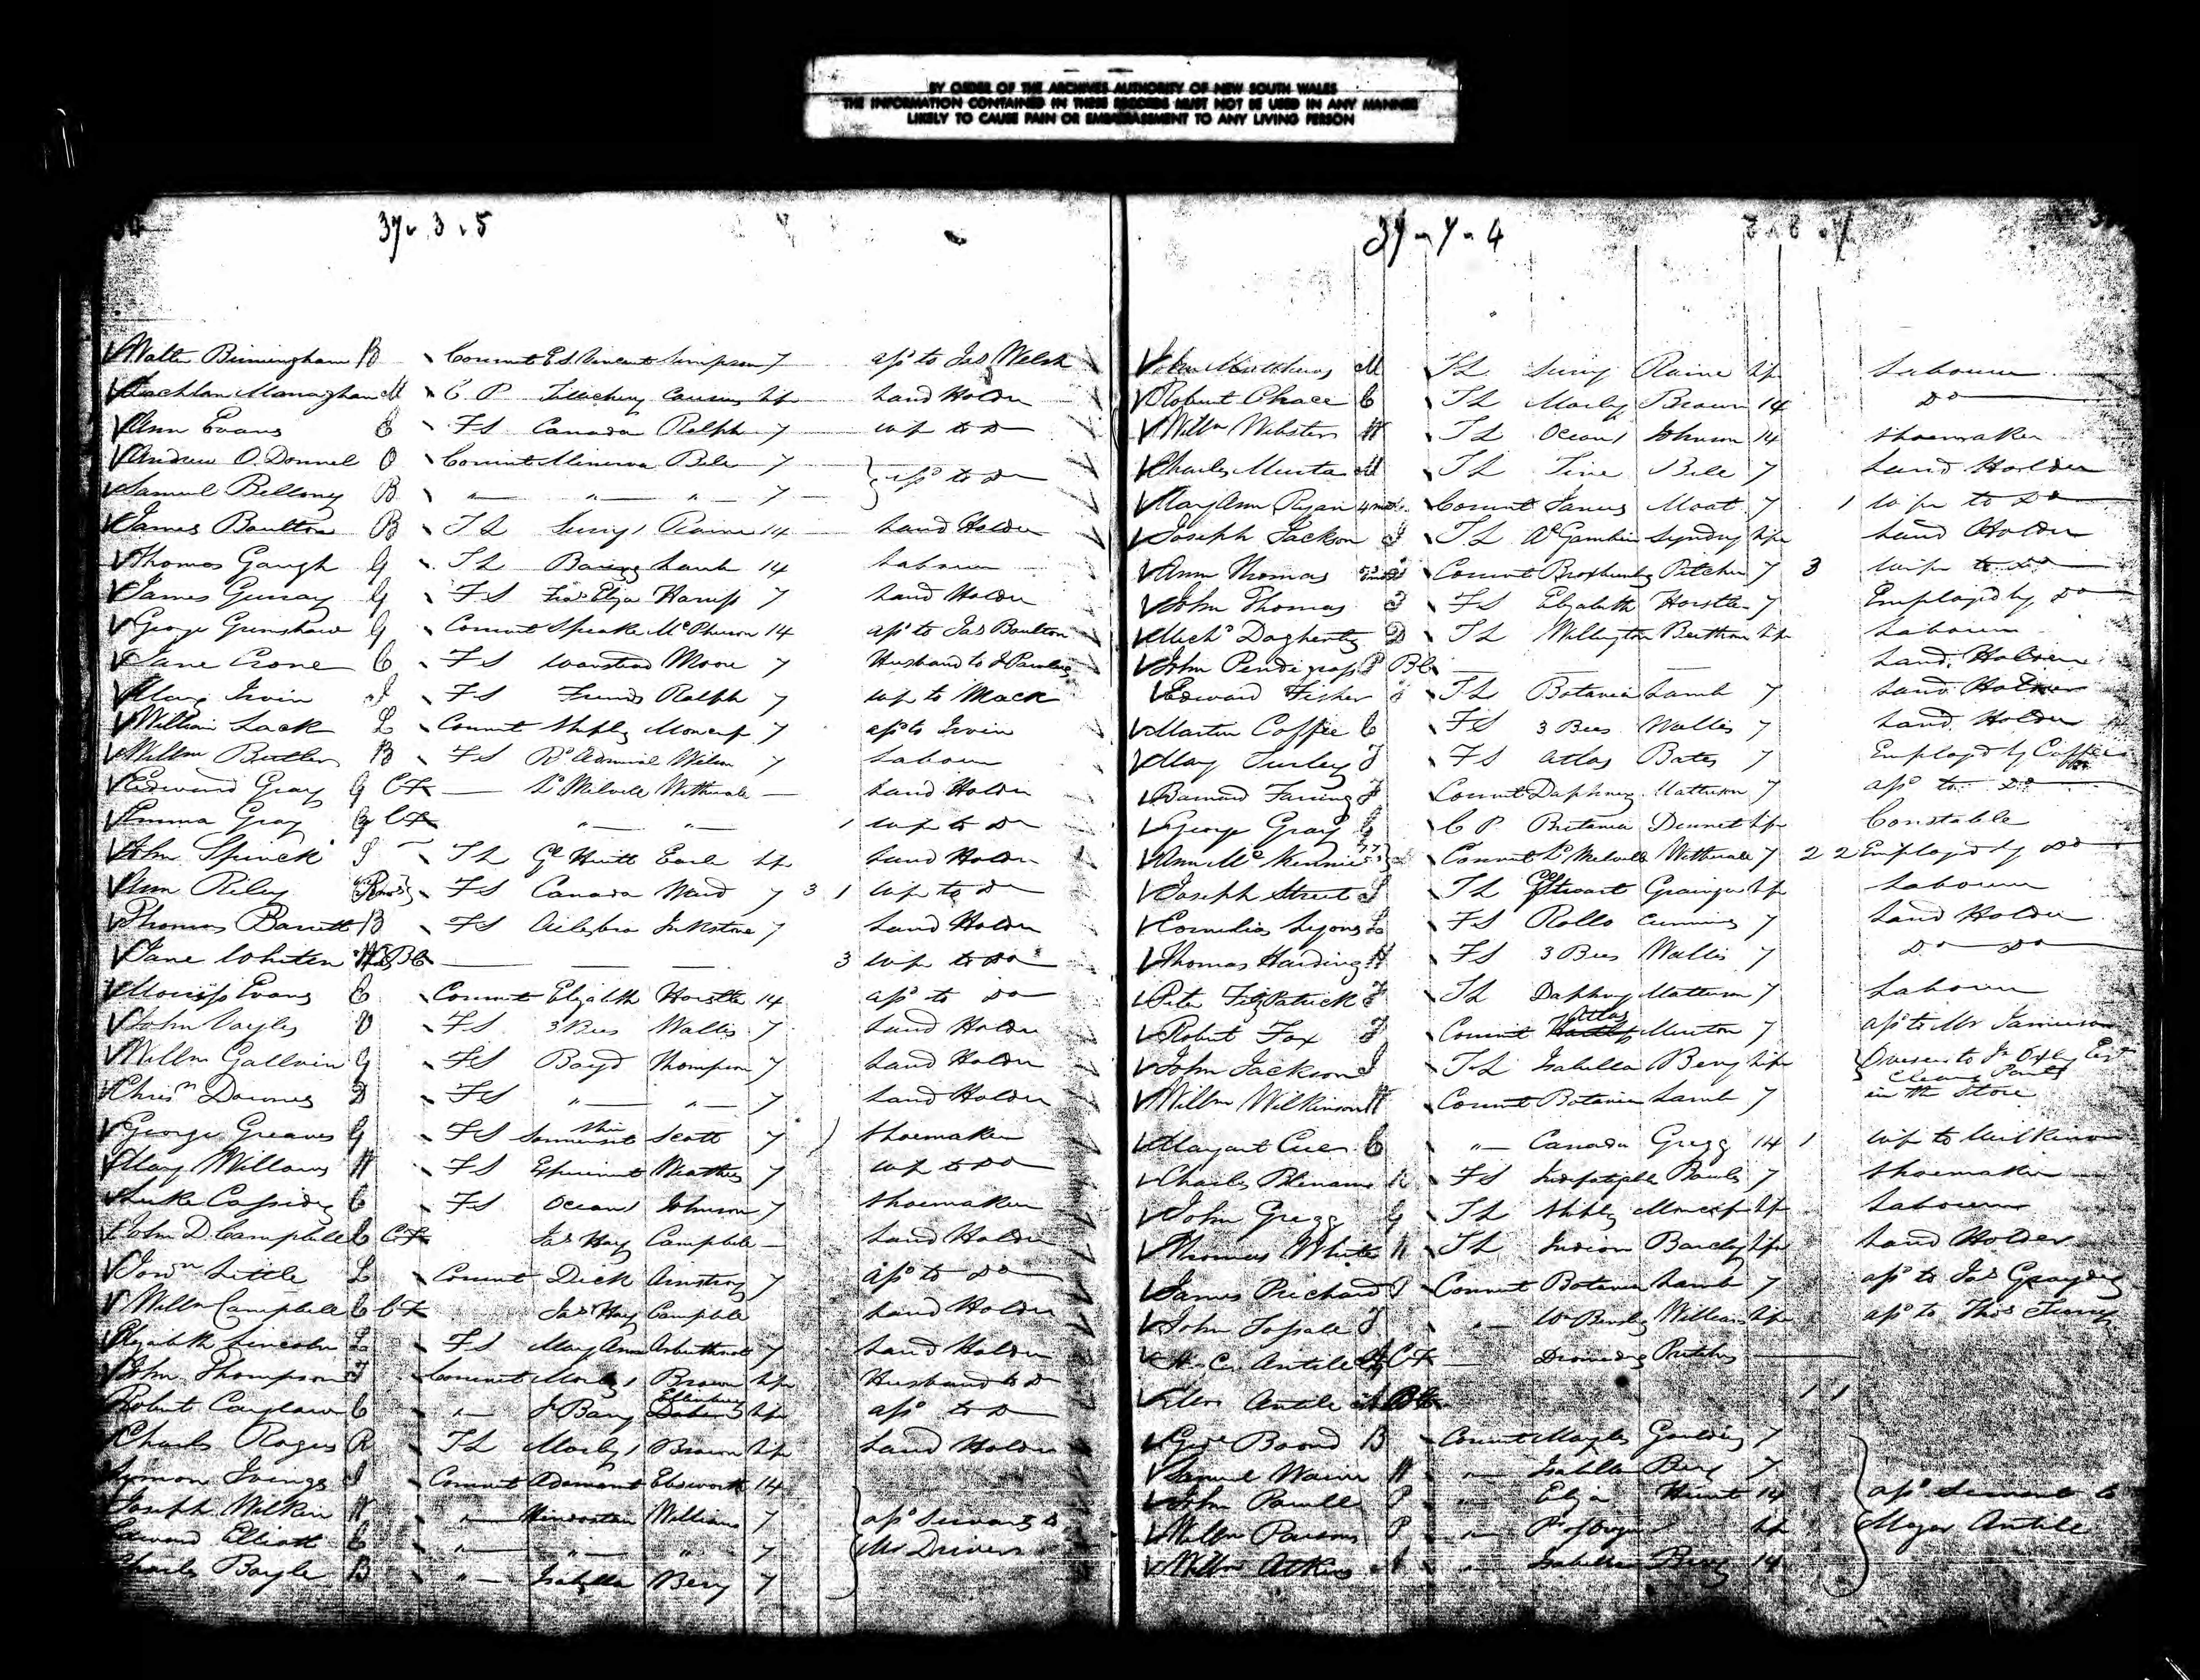 BY ORDER OF THE ARCHIVES AUTHORITY OF NEW SOUTH WALES
THE INFORMATION CONTAINED IN THESE RECORDS MUST NOT BE USED IN ANY MANNER
LIKELY TO CAUSE PAIN OR EMBARRASSMENT TO ANY LIVING PERSON
37 . 3 . 5
Walter Birmingham B Convict E St Vincent Simpson 7 asso to Jas Welsh
Lachlan Managhan M C P Tellicherry Cousins Life Land Holder
Ann Evans E FS Canada Ralph 7 wife to Do
Andrew O. Donnel O Convict Minerva Bell 7 asso to Do
Samuel Bellony B " " " 7
James Boulton B TL Surry 1 Raine 14 Land Holder
Thomas Gaugh G TL Baring Lamb 14 Labourer
James Gurray G FS Fras Eliza Harrup 7 Land Holder
George Grimshaw G Convict Speake McPherson 14 asso to Jas Boulton
Jane Crone C FS Wanstead Moore 7 Husband to J
Mary Irvin I FS Friends Ralph 7 wife to Mack
William Lack L Convict Shipley Moncrief 7 asso to Irvin
Willm Butler B FS Rl Admiral Wilson 7 Labourer
Edward Gray G CF — Ld Melville Wetherall — Land Holder
Emma Gray G CF " " 1 wife to Do
John Spinck S TL Gl Hewitt Earl Life Land Holder
Ann Riley FS Canada Ward 7 3 1 wife to Do
Thomas Barrett B FS Ailsbra Inkstone 7 Land Holder
Jane Whiten BC — — — 3 wife to Do
Morriss Evans E Convict Elizabeth Horstle 14 asso to Do
John Vayles V FS 3 Bees Wallis 7 Land Holder
Willm Gallvin G FS Boyd Thompson 7 Land Holder
Chrisn Downes D FS " " 7 Land Holder
George Greaves G FS Somersetshire Scott 7 Shoemaker
Mary Willows W FS Experiment Matthews 7 wife to Do
Luke Cassidy C FS Ocean 1 Johnson 7 Shoemaker
John D Campbell C CF Jas Hay Campbell — Land Holder
Little L Convict Dick Armstrong 7 asso to Do
Willm Campbell C CF Jas Hay Campbell Land Holder
Elizabeth Lincoln L FS Mary Ann Arbuthnot 7 Land Holder
John Thompson T Convict Morley 1 Brown Life Husband to Do
Robert C " J Barry Ellerbury Life asso to Do
Charles Roges R TL Morley 1 Brown Life Land Holder
Simon Ivings I Convict Adamant Elsworth 14
Joseph Wilkin W " Hindostan Williams 7 asso Servants to
Edward Elliott E " " " 7 Mr Drivers
Charles Boyle B " Isabella Berry 7
37 - 4 - 4
John Matthews M TL Surry Raine Life Labourer
Robert Chace C TL Morley Brown 14 Do
Willm Webster W TL Ocean 1 Johnson 14 Shoemaker
Charles Murta M TL Tine Bell 7 Land Holder
Mary Ann Ryan Convict Janus Moat 7 1 wife to Do
Joseph Jackson J TL Al Gambier Syndrey Life Land Holder
Ann Thomas Convict Broxburnby Pitcher 7 3 wife to Do
John Thomas T FS Elizabeth Horstle 7 Employed by Do
Michl Dogherty D TL Wellington Betham Life Labourer
John Pendigrass P BC — — — Land Holder
Edward Fisher F TL Batavia Lamb 7 Land Holder
Martin Coffie C FS 3 Bees Wallis 7 Land Holder
Mary Turley T FS Atlas Bates 7 Employed by Coffie
Barnard Farring F Convict Daphney Matterson 7 asso to Do
George Gray G C P Britania Dennet Life Constable
Ann Mc Kennie Convict Ld Melville Wetherall 7 2 2 Employed by Do
Joseph Street S TL Gl Stewart Grainger Life Labourer
Cornelius Lyons L FS Rollo Cummins 7 Land Holder
Thomas Harding H FS 3 Bees Wallis 7 Do Do
Peter FitzPatrick F TL Daphny Matterson 7 Labourer
Robert Fox F Convict Atlas Murton 7 asso to Mr Jamieson
John Jackson J TL Isabella Berry Life Overseer to Jn Oxley Esqr
Willm Wilkinson W Convict Batavia Lamb 7 in the Store
Margart C " Canada Gregg 14 1 wife to Wilkinson
Charles Blinams FS Indefatigable Bowles 7 Shoemaker
John Gregg G TL Shipley Moncrief Life Labourer
Thomas White W TL Indian Barclay Life Land Holder
James Prichard P Convict Batavia Lamb 7 asso to Jas
John Topale T " Wm Bensley Williams Life asso to Thos
H. C. Antile A CF — Dromedary Pritchard
Mrs Antile A BC 1 1
Geoe Boond B Convict Marples Goulding 7
Samuel Warrin W " Isabella Berry 7
John Powell P " Eliza Hunt 14 asso Servants to
Willm Parsons P " Life Major Antile
Willm Atkins A " Isabella Berry 14